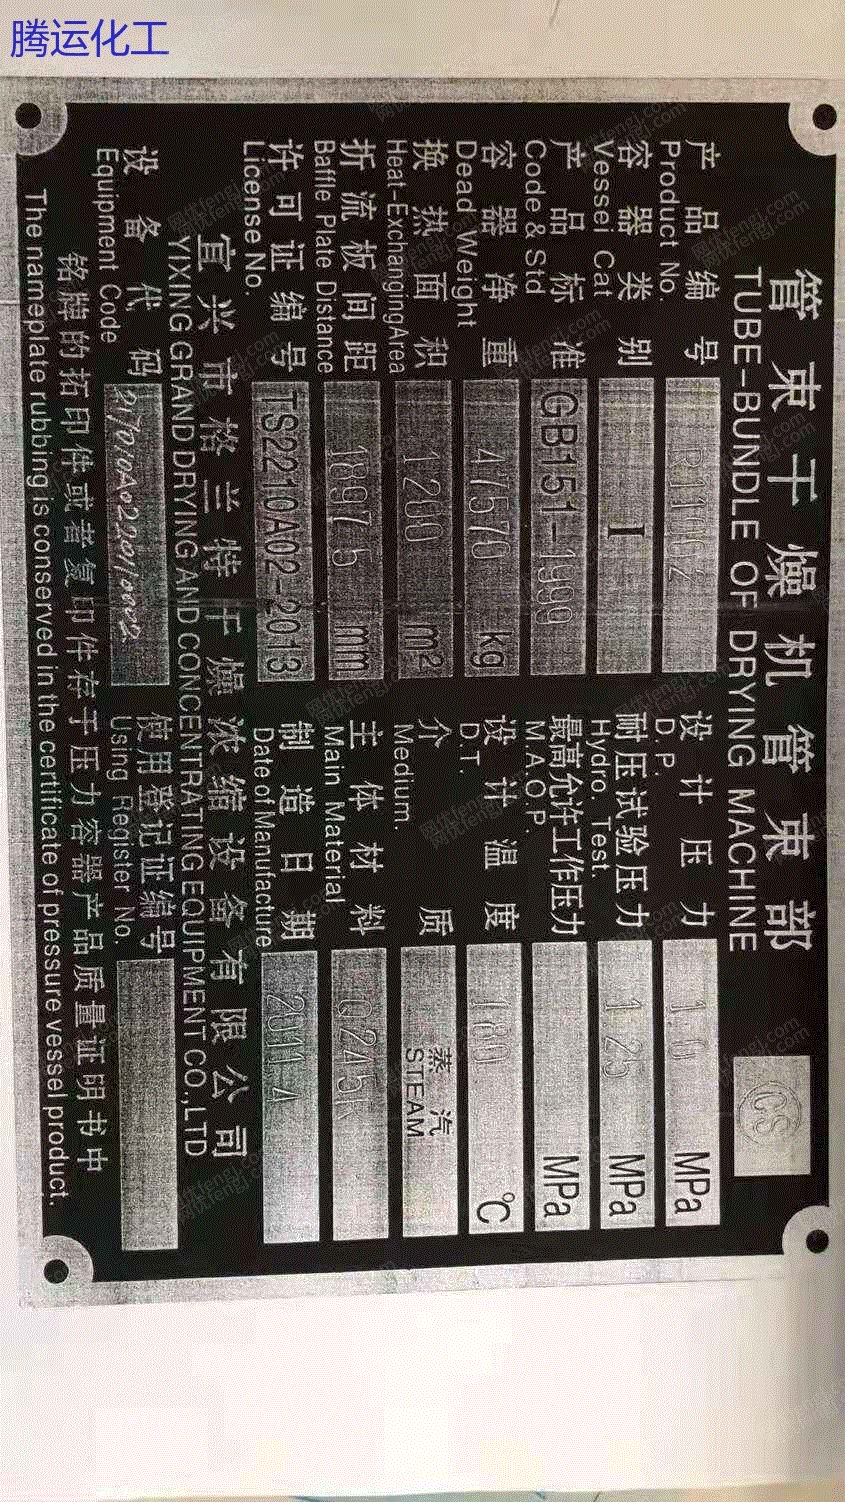 腾运化工
管束干燥机管束部
TUBE-BUNDLE OF DRYING MACHINE
CS
产品编号
Product No.
设计压力
D.P.
1.0 MPa
容器类别
Vessel Cat
I
耐压试验压力
Hydro. Test.
1.25 MPa
产品标准
Code & Std
GB151-1999
最高允许工作压力
M.A.O.P.
MPa
容器净重
Dead Weight
47570 kg
设计温度
D.T.
180 ℃
换热面积
Heat-ExchangingArea
1200 m2
介质
Medium.
蒸汽
STEAM
折流板间距
Baffle Plate Distance
1897.5 mm
主体材料
Main Material
Q245R
许可证编号
License No.
TS2210A02-2013
制造日期
Date of Manufacture
2011.4
宜兴市格兰特干燥浓缩设备有限公司
YIXING GRAND DRYING AND CONCENTRATING EQUIPMENT CO.,LTD
设备代码
Equipment Code
使用登记证编号
Using Register No.
铭牌的拓印件或者复印件存于压力容器产品质量证明书中
The nameplate rubbing is conserved in the certificate of pressure vessel product.